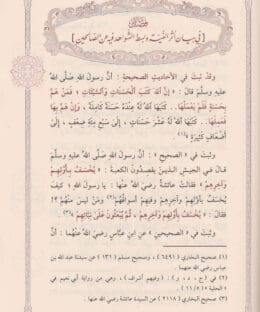 فصل
[ في بيان أثر النية وبسط الشواهد فيه عن الصالحين ]
وقد ثبت في الأحاديث الصحيحة : أنَّ رسول الله صلَّى الله
عليه وسلَّم قال : « إِنَّ اللهَ كتبَ الحسناتِ والسَّيِّئاتِ ؛ فمَنْ همَّ
بحسنةٍ فلم يعملْها.. كتبَها اللهُ لهُ عندَهُ حسنةً كاملةً ، وإنْ همَّ بها
فعملَها.. كتبَها اللهُ لهُ عشرَ حسناتٍ ، إلى سبعِ مئةِ ضعفٍ ، إلى
أضعافٍ كثيرةٍ »(١)
وثبت في « الصحيحين » : أنَّ رسول الله صلَّى الله عليه وسلَّم
قال في الجيش الذين يقصدون الكعبة : « يُخسَفُ بأوَّلِهم
وآخرِهم » فقالت عائشة رضي الله عنها : يا رسول الله ؛ كيف
يُخسَف بأوَّلهم وآخرهم وفيهم أسواقُهم(٢) ومَنْ ليس منهم ؟!
فقال : « يُخسَفُ بأوَّلِهم وآخرِهم ، ثمَّ يُبعثونَ على نيَّاتِهم »(٣).
وثبت في « الصحيحين » عن ابن عباس رضي الله عنهما : أنَّ
(١) صحيح البخاري ( ٦٤٩١ ) ، وصحيح مسلم ( ١٣١ ) عن سيدنا عبد الله بن
عباس رضي الله عنهما .
(٢) في ( ج ، د ، و ) : ( وفيهم أشراف ) ، وهي من رواية أبي نعيم في
« الحلية » ( ١١/٥ ) .
(٣) صحيح البخاري ( ٢١١٨ ) عن السيدة عائشة رضي الله عنها .